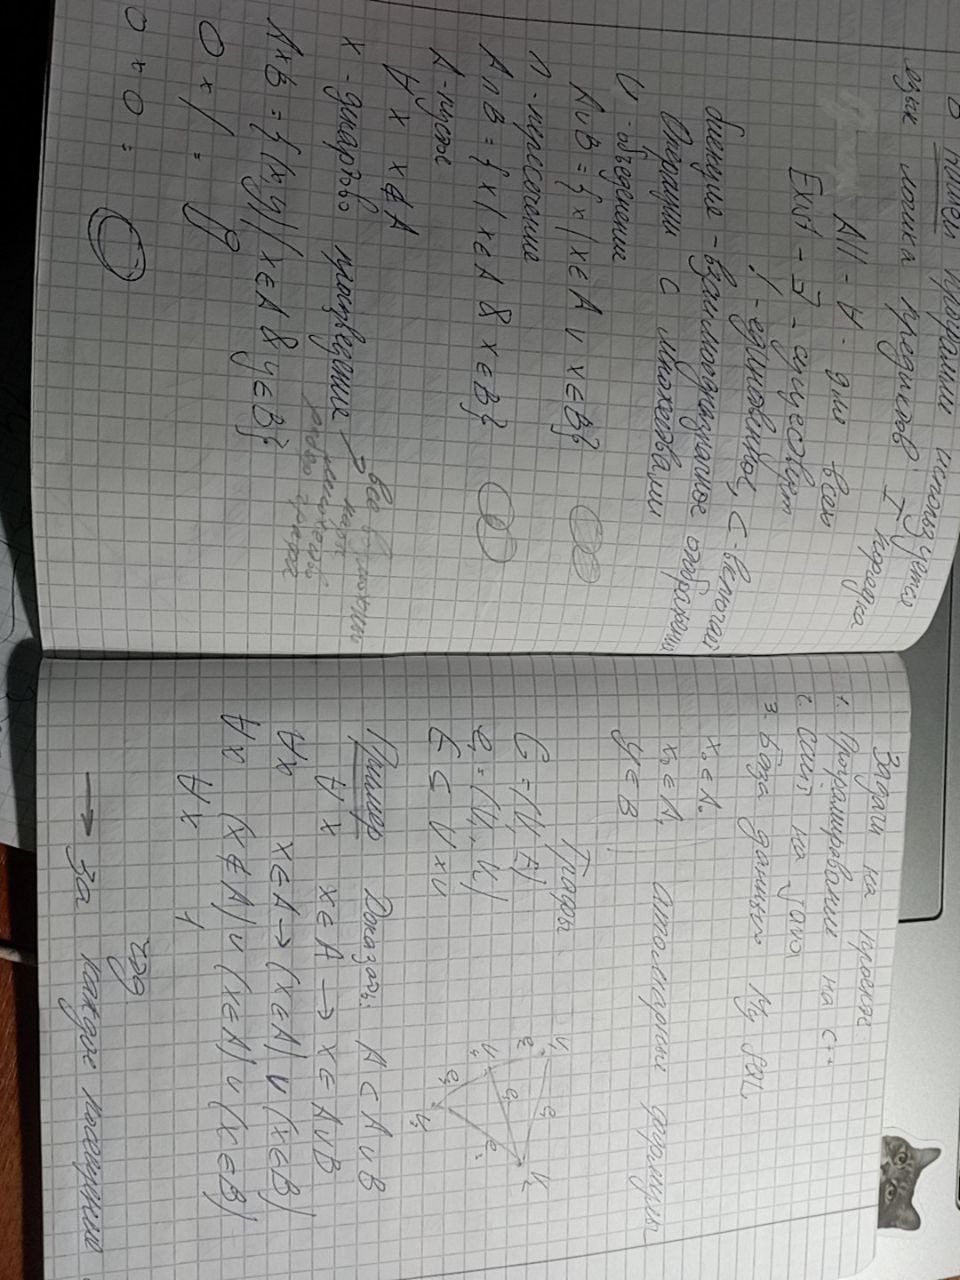 В нашей программе используется
язык логика предиктов I порядка
All - ∀ - для всех
Exist - ∃ - существует
! - единственное, ⊂ - включает
биекция - взаимооднозначное отображение
Операции с множествами
∪ - объеденение
A∪B = {x | x∈A ∨ x∈B}
∩ - пересечение
A∩B = {x | x∈A & x∈B}
A - пусто
∀ x x∉A
x - декартово произведение
все возможные
пары
множество
ребер графа
A×B = {(x,y) | x∈A & y∈B}
O × / =
O × O =
Задачи на проект
1. Програмирование на C++
2. сайт на java
3. База данных My SQL
x₀ ∈ A₀
x₀ ∈ A₁ атомарные формулы
y ∈ B
Графы
G = (V, E)
e₁ = (V₁, V₂)
E ⊆ V × V
V₁ e₁ V₂
e₂ e₄
V₄ e₃ V₃
Пример Доказать: A ⊂ A∪B
∀ x x∈A → x∈A∪B
∀x x∈A → (x∈A) ∨ (x∈B)
∀x (x∉A) ∨ (x∈A) ∨ (x∈B)
∀x 1
чтд
→ За каждое посещение